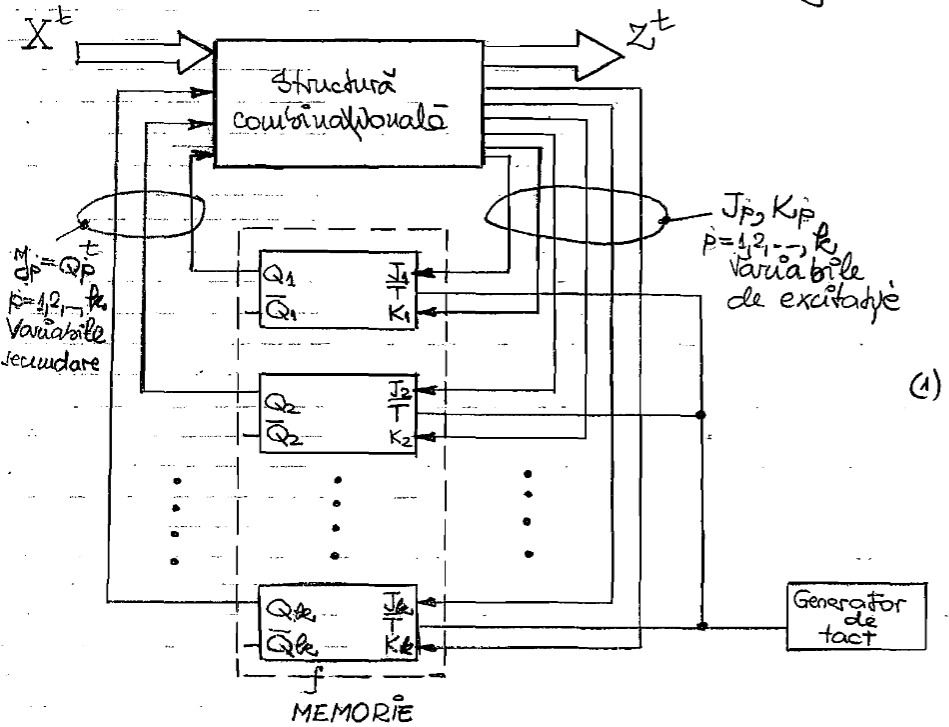 X^t
Z^t
Structură
combinațională
y_p = Q_p^t
p=1,2,..., k,
Variabile
secundare
J_p, K_p
p=1,2,..., k,
Variabile
de excitație
Q_1
J_1
T
Q̅_1
K_1
Q_2
J_2
T
Q̅_2
K_2
(1)
Q_k
J_k
T
Q̅_k
K_k
Generator
de
tact
MEMORIE